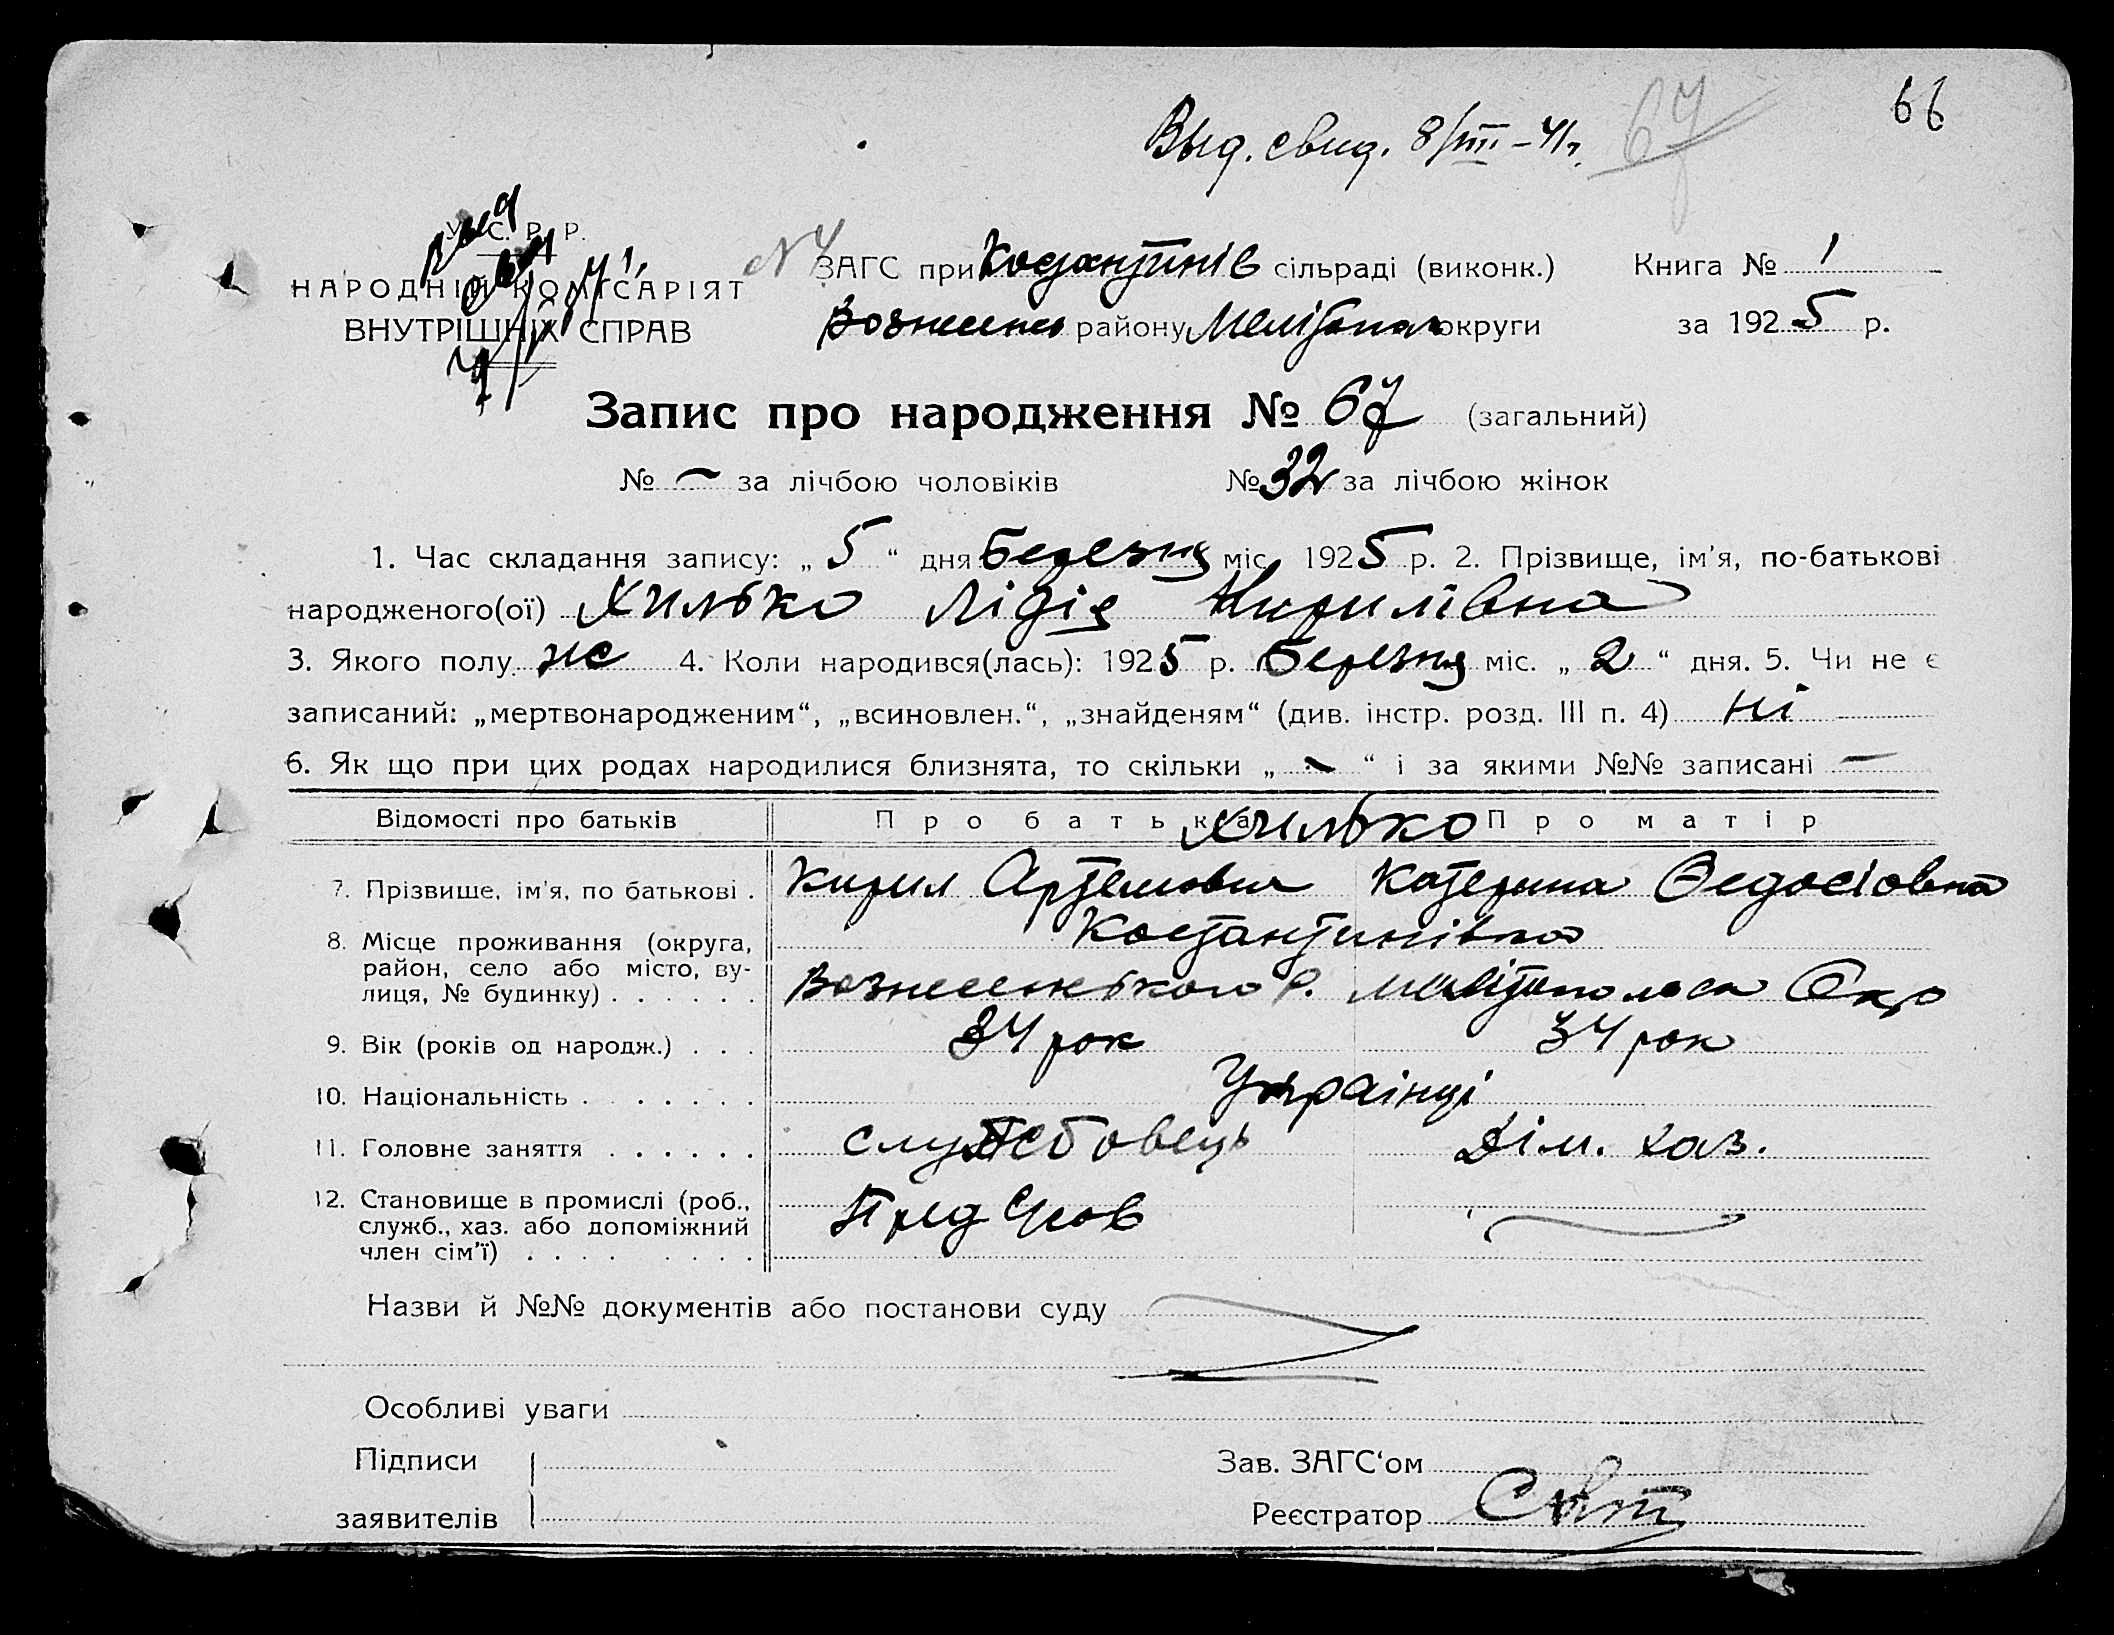 66
67
Выд. свид. 8/III-41г.
У. С. Р. Р.
НАРОДНІЙ КОМІСАРІЯТ
ВНУТРІШНІХ СПРАВ
ЗАГС при Костянтинів сільраді (виконк.) Книга № 1
Вознесенс району Меліто округи за 1925 р.
Запис про народження № 67 (загальний)
№ — за лічбою чоловіків № 32 за лічбою жінок
1. Час складання запису: „ 5 “ дня Березня міс. 1925 р. 2. Прізвище, ім'я, по-батькові
народженого(ої) Хилько Лідія Кирилівна
3. Якого полу же 4. Коли народився(лась): 1925 р. Березня міс. „ 2 “ дня. 5. Чи не є
записаний: „мертвонародженим“, „всиновлен.“, „знайденям“ (див. інстр. розд. III п. 4) ні
6. Як що при цих родах народилися близнята, то скільки „ - “ і за якими №№ записані —
Відомості про батьків Про батька Хилько Про матір
7. Прізвище, ім'я, по батькові . Кирил Артемович Катерина Федосіовна
8. Місце проживання (округа, Костантинівка
район, село або місто, ву-
лиця, № будинку) . . . . . . Вознесенського р. Окр
9. Вік (років од народж.) . . . 34 рок 34 рок
10. Національність . . . . . . . Украінці
11. Головне заняття . . . . . . службовець Дім. хаз.
12. Становище в промислі (роб.,
служб., хаз. або допоміжний Пред
член сім'ї) . . . . . . . .
Назви й №№ документів або постанови суду
Особливі уваги
Підписи Зав. ЗАГС'ом
заявителів Реєстратор